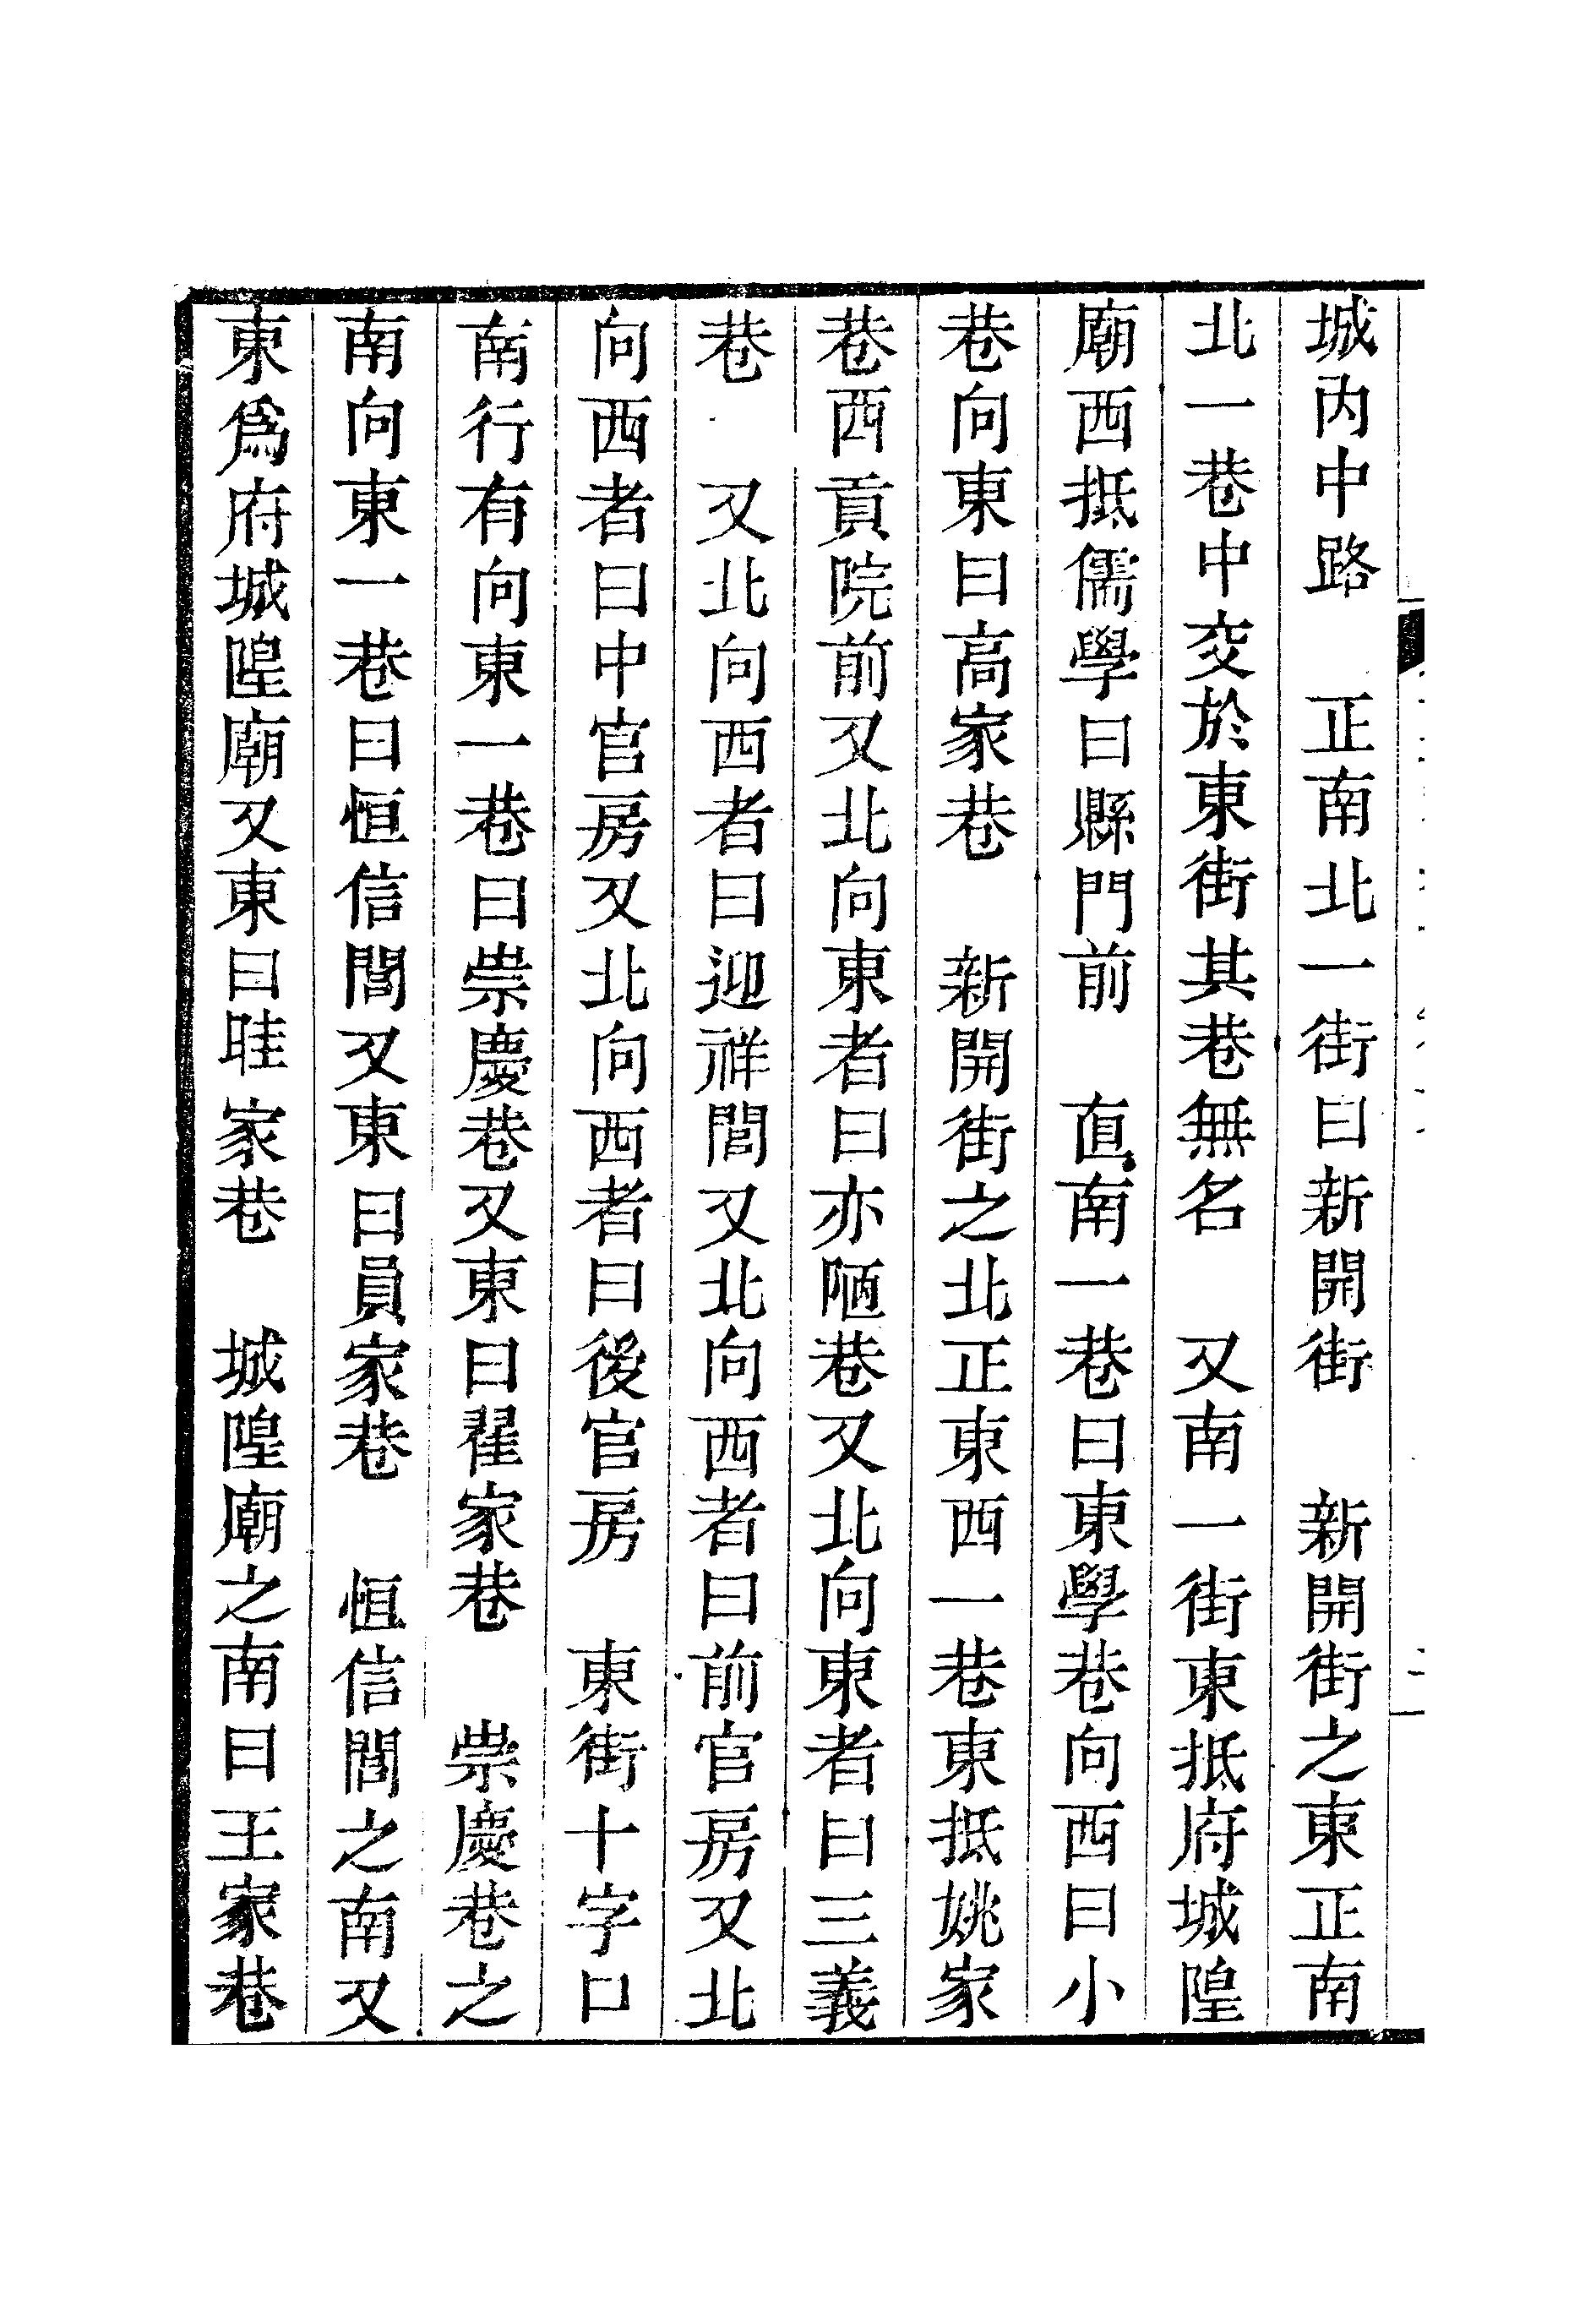 城内中路　正南北一街曰新開街　新開街之東正南
北一巷中交於東街其巷無名　又南一街東抵府城隍
廟西抵儒學曰縣門前　直南一巷曰東學巷向西曰小
巷向東曰高家巷　新開街之北正東西一巷東抵姚家
巷西貢院前又北向東者曰亦陋巷又北向東者曰三義
巷　又北向西者曰迎祥閭又北向西者曰前官房又北
向西者曰中官房又北向西者曰後官房　東街十字口
南行有向東一巷曰崇慶巷又東曰翟家巷　崇慶巷之
南向東一巷曰恒信閭又東曰員家巷　恒信閭之南又
東爲府城隍廟又東曰眭家巷　城隍廟之南曰王家巷